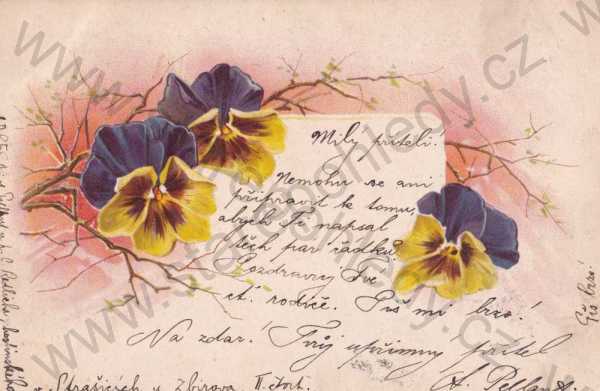 Milý příteli!
Nemohu se ani
připravit k tomu,
abych Ti napsal
těch par řádků.
Pozdravuj Tvé
ct. rodiče. Piš mi brzo!
Na zdar! Tvůj upřímný přítel
Piš brzo!
v Strašicích u Zbirova II. čtvrt.
www.stare-pohledy.cz